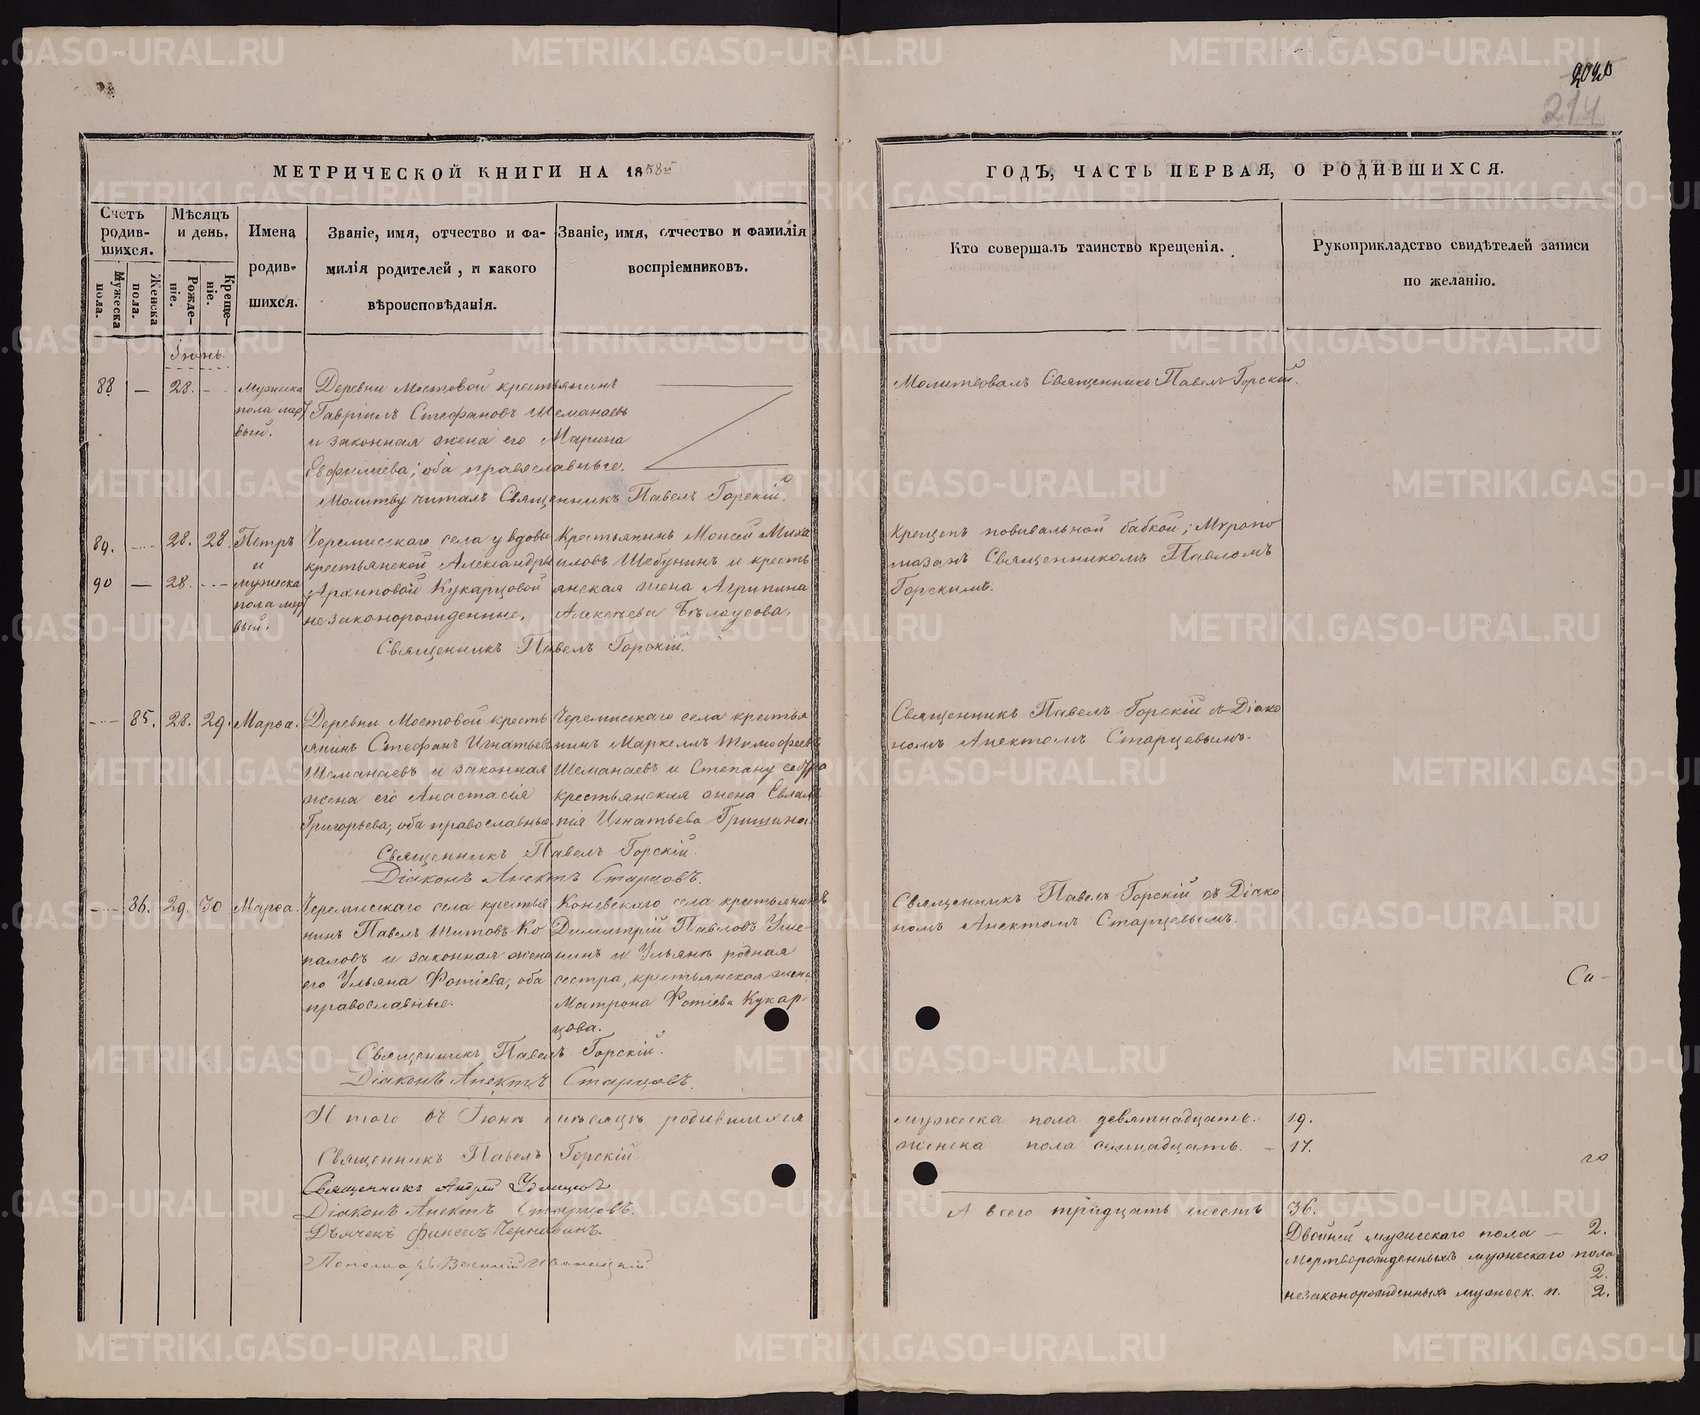 2020
214
МЕТРИЧЕСКОЙ КНИГИ НА 1858й
ГОДЪ, ЧАСТЬ ПЕРВАЯ, О РОДИВШИХСЯ.
Счетъ родив-шихся.
Мужеска пола.
Женска пола.
Мѣсяцъ и день.
Рожде-ніе.
Креще-ніе.
Имена родив-шихся.
Званіе, имя, отчество и фа-
милія родителей, и какого
вѣроисповѣданія.
Званіе, имя, отчество и фамилія
воспріемниковъ.
Кто совершалъ таинство крещенія.
Рукоприкладство свидѣтелей записи
по желанію.
Іюнь.
88 — 28. — Мужеска Деревни Мостовой крестьянинъ
пола мер Гавріилъ Стефановъ Шеманаевъ
вый. и законная жена его Марина
оба православные.
Молитву читалъ Священникъ Павелъ Горскій.
Молитвовалъ Священникъ Павелъ Горскій.
89. — 28. 28 Петръ Черемисскаго села у вдовы Крестьянинъ Моисей Миха
и крестьянской Александры иловъ Шебунинъ и кресть
90 — 28. — мужеска Архиповой Кукарцовой янская жена Агрипина
пола мер незаконорожденные. Бѣлоусова.
вый.
Священникъ Павелъ Горскій.
Крещенъ повивальной бабкой; Мѵропо
мазанъ Священникомъ Павломъ
Горскимъ.
— 85. 28. 29. Марѳа. Деревни Мостовой кресть Черемисскаго села крестья
янинъ Стефанъ Игнатьевъ нинъ Маркеллъ Тимофеевъ
Шеманаевъ и законная Шеманаевъ и Степану сестра
жена его Анастасія крестьянская жена Евлам
Григорьева, оба православные. пія Игнатьева Гришина.
Священникъ Павелъ Горскій.
Діаконъ Анектъ Старцовъ.
Священникъ Павелъ Горскій съ Діако
номъ Анектомъ Старцевымъ.
— 86. 29. 30 Марѳа. Черемисскаго села крестья Коневскаго села крестьянинъ
нинъ Павелъ Титовъ Ко Димитрій Павловъ
паловъ и законная жена нинъ и Ульянѣ родная
его Ульяна Фотіева, оба сестра, крестьянская жена
православные. Матрона Фотіева Кукар-
цова.
Священникъ Павелъ Горскій.
Діаконъ Анектъ Старцовъ.
Священникъ Павелъ Горскій съ Діако
номъ Анектомъ Старцевымъ.
Са-
Итого въ Іюнѣ мѣсяцѣ родившихся
мужеска пола девятнадцать. 19.
женска пола семнадцать. — 17.
го
Священникъ Павелъ Горскій.
Священникъ Андрей Удинцовъ
Діаконъ Анектъ Старцовъ.
Дьячекъ Финеесъ Чернавинъ.
Пономарь Василій
А всего тридцать шесть 36.
Двойней мужескаго пола — 2.
Мертворожденныхъ мужескаго пола
2.
незаконорожденныхъ мужеск. п. 2.
METRIKI.GASO-URAL.RU